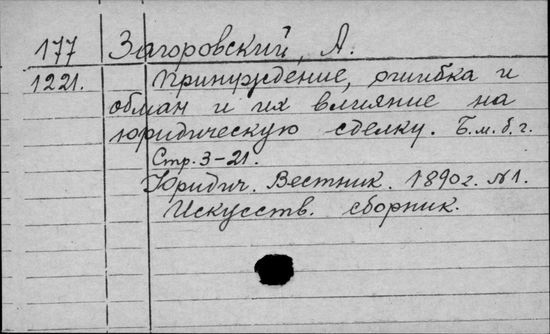 177 Загоровский, А.
1221. Принуждение, ошибка и
обман и их влияние на
юридическую сделку. Б.м.б.г.
Стр. 3-21.
Юридич. Вестник. 1890г. №1.
Искусств. сборник.